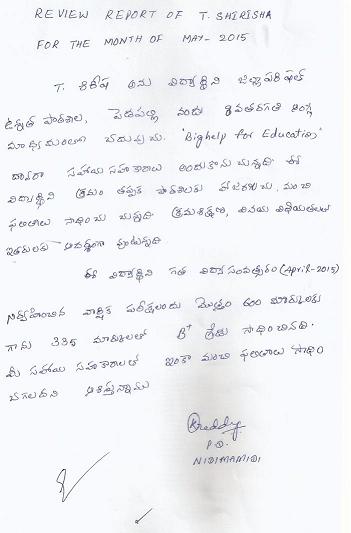 REVIEW REPORT OF T. SHIRISHA
FOR THE MONTH OF MAY-2015
T. శిరీష అను విద్యార్థిని జిల్లాపరిషత్
ఉన్నత పాఠశాల, పెడపల్లి నందు 9వతరగతి ఇంగ్లీ
మాధ్యమంలో చదువుచు. 'Bighelp for Education'
ద్వారా సహాయ సహకారాలు అందుకొనుచున్నది. ఈ
విద్యార్థిని క్రమం తప్పక పాఠశాలకు హాజరగుచు, మంచి
ఫలితాలు సాధించుచున్నది. క్రమశిక్షణ, వినయ విధేయతలు
ఇతరులకు ఆదర్శంగా వుంటున్నది.
ఈ విద్యార్థిని గత విద్యాసంవత్సరం (April-2015)
నిర్వహించిన వార్షిక పరీక్షలందు మొత్తం 600 మార్కులకు
గాను 335 మార్కులతో B+ గ్రేడు సాధించినది.
మీ సహాయ సహకారాలతో ఇంకా మంచి ఫలితాలు సాధిం
చగలదని ఆశిస్తున్నాము
Reddy
P.D.
NIDIMAMIDI